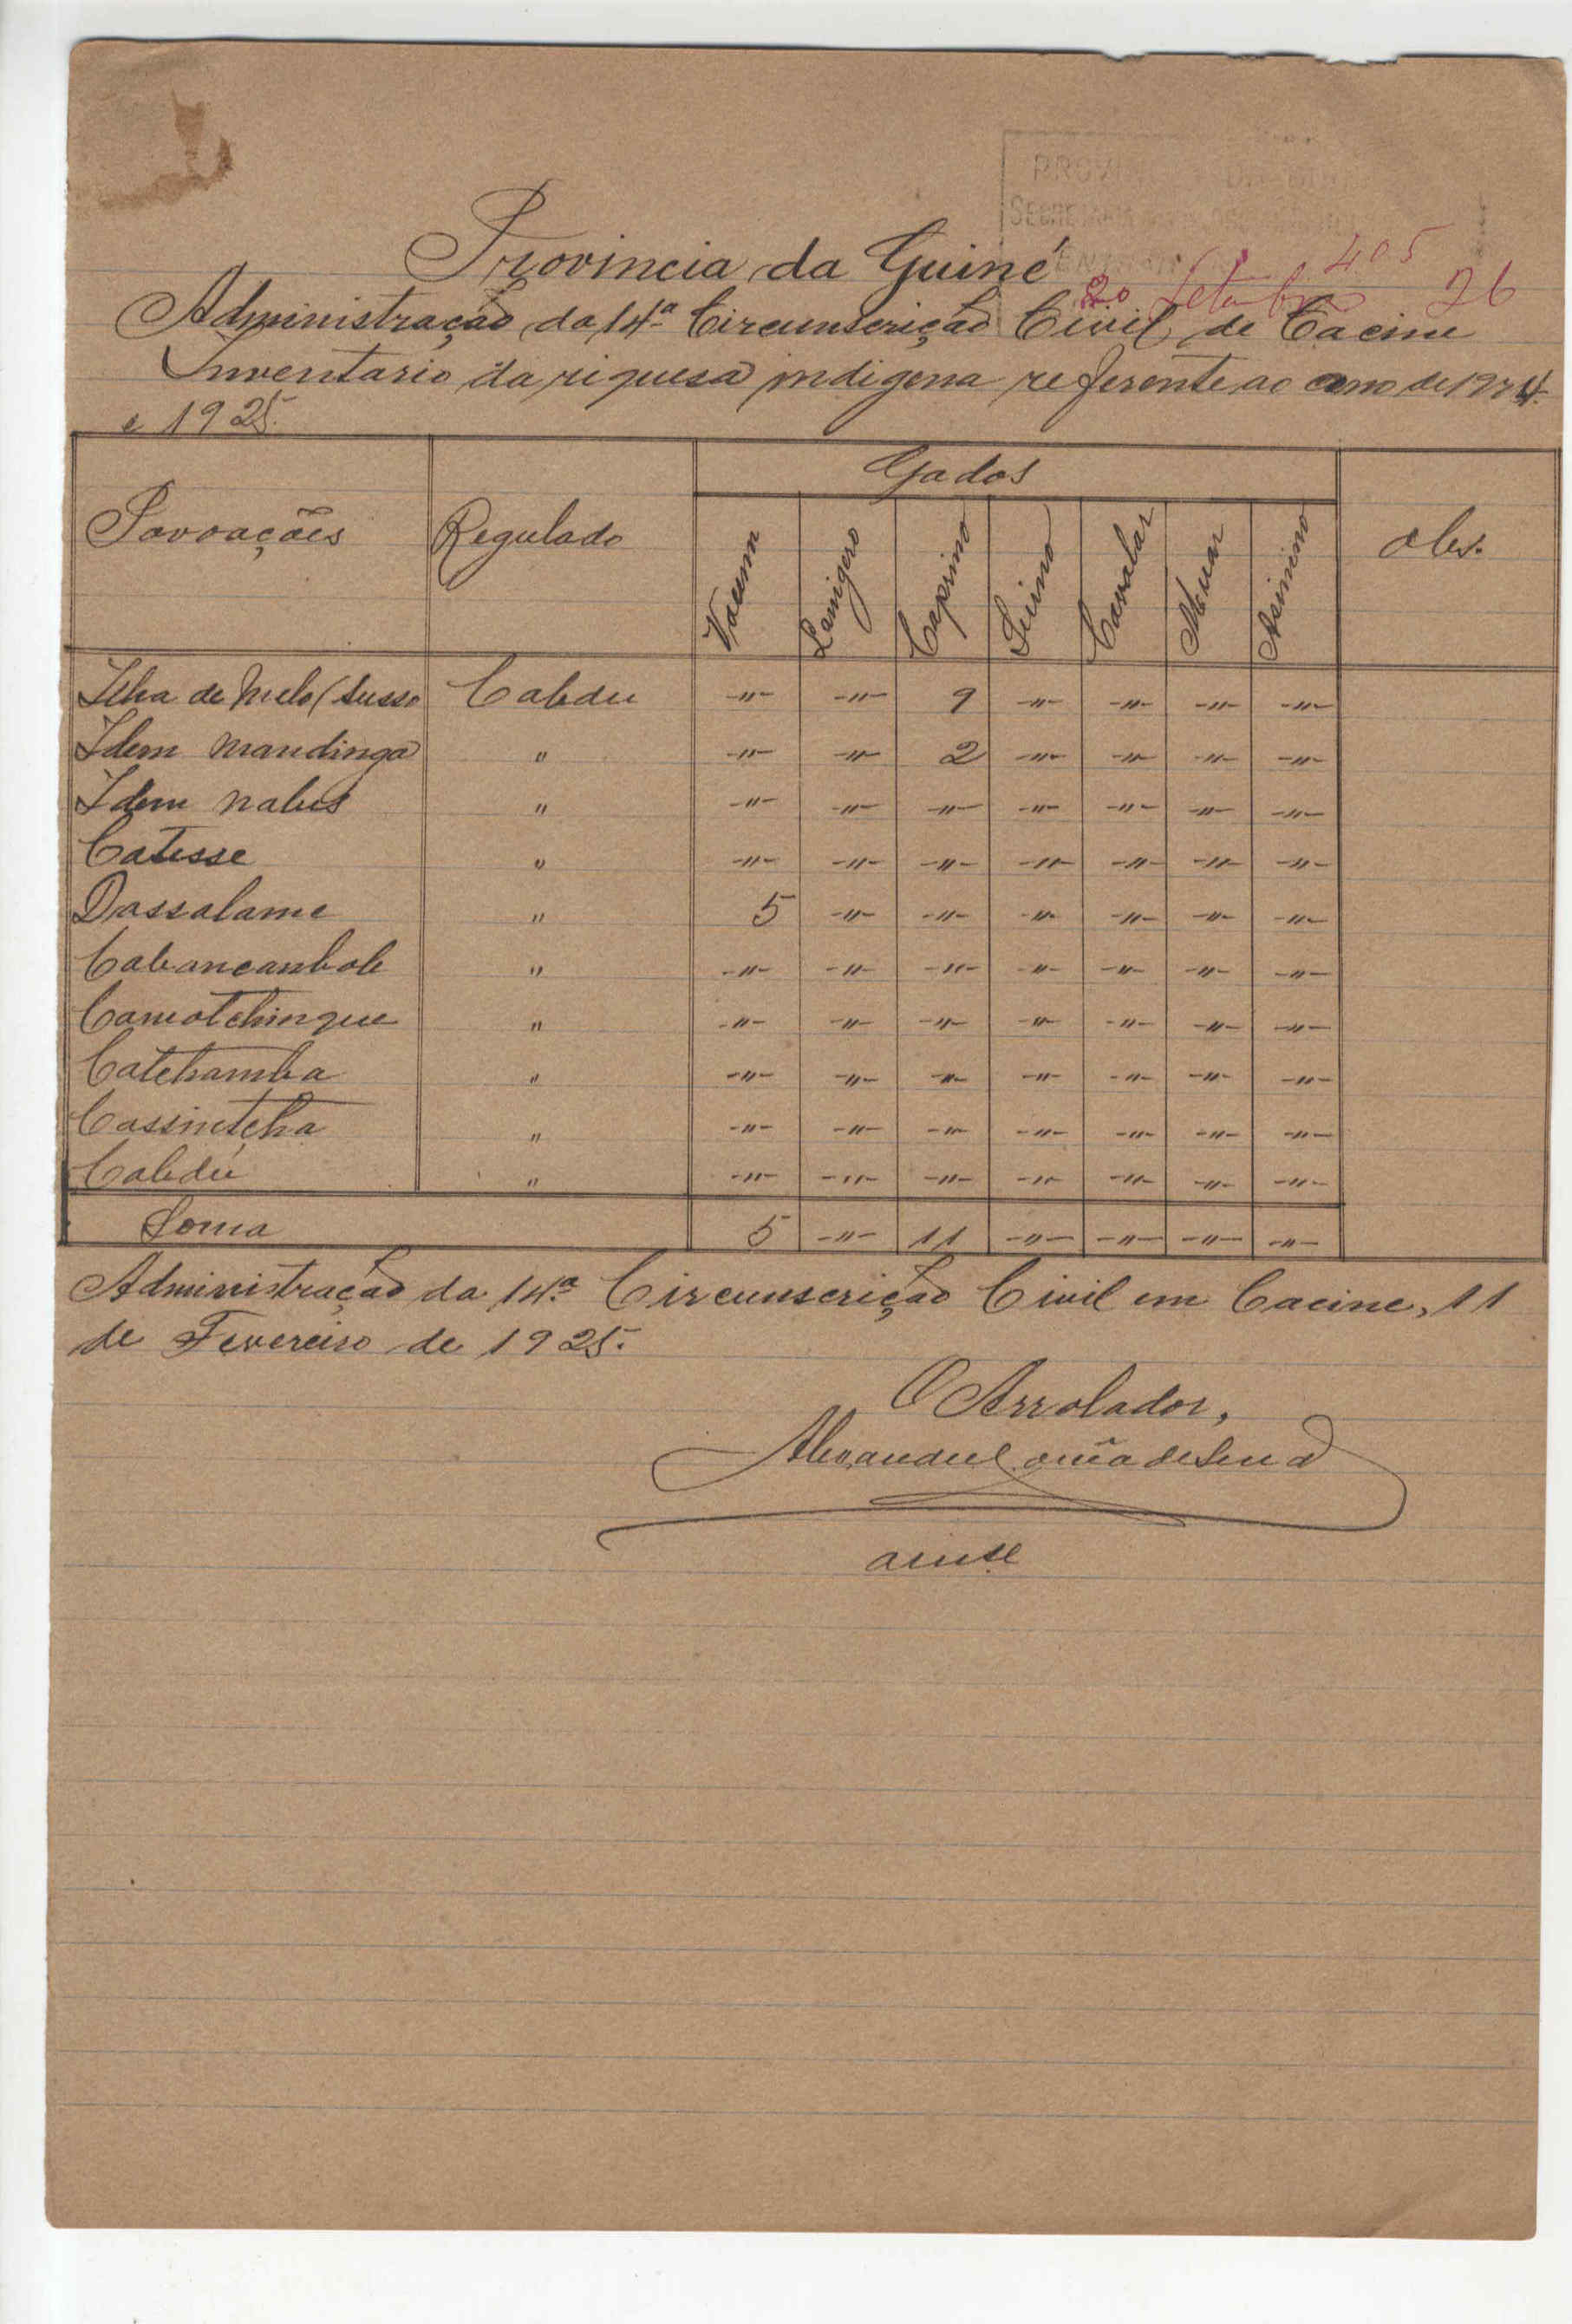 PROVIN
405
Provincia da Guiné
20 Setembro 26
Administração da 14ª Circunscrição Civil de Cacine
Inventario da riquesa indigena referente ao ano de 1924
e 1925.
Povoações Regulado Gados Obs.
Vacum Lanigero Caprino Suino Cavalar Muar Asinino
Ilha de Melo (Susso Cabdu -"- -"- 9 -"- -"- -"- -"-
Idem Mandinga " -"- -"- 2 -"- -"- -"- -"-
Idem nalus " -"- -"- -"- -"- -"- -"- -"-
Catesse " -"- -"- -"- -"- -"- -"- -"-
Dassalame " 5 -"- -"- -"- -"- -"- -"-
Cabancanbole " -"- -"- -"- -"- -"- -"- -"-
Camotchingue " -"- -"- -"- -"- -"- -"- -"-
Catchamba " -"- -"- -"- -"- -"- -"- -"-
Cassintcha " -"- -"- -"- -"- -"- -"- -"-
Cabdú " -"- -"- -"- -"- -"- -"- -"-
Soma 5 -"- 11 -"- -"- -"- -"-
Administração da 14ª Circunscrição Civil em Cacine, 11
de Fevereiro de 1925.
O Arrolador,